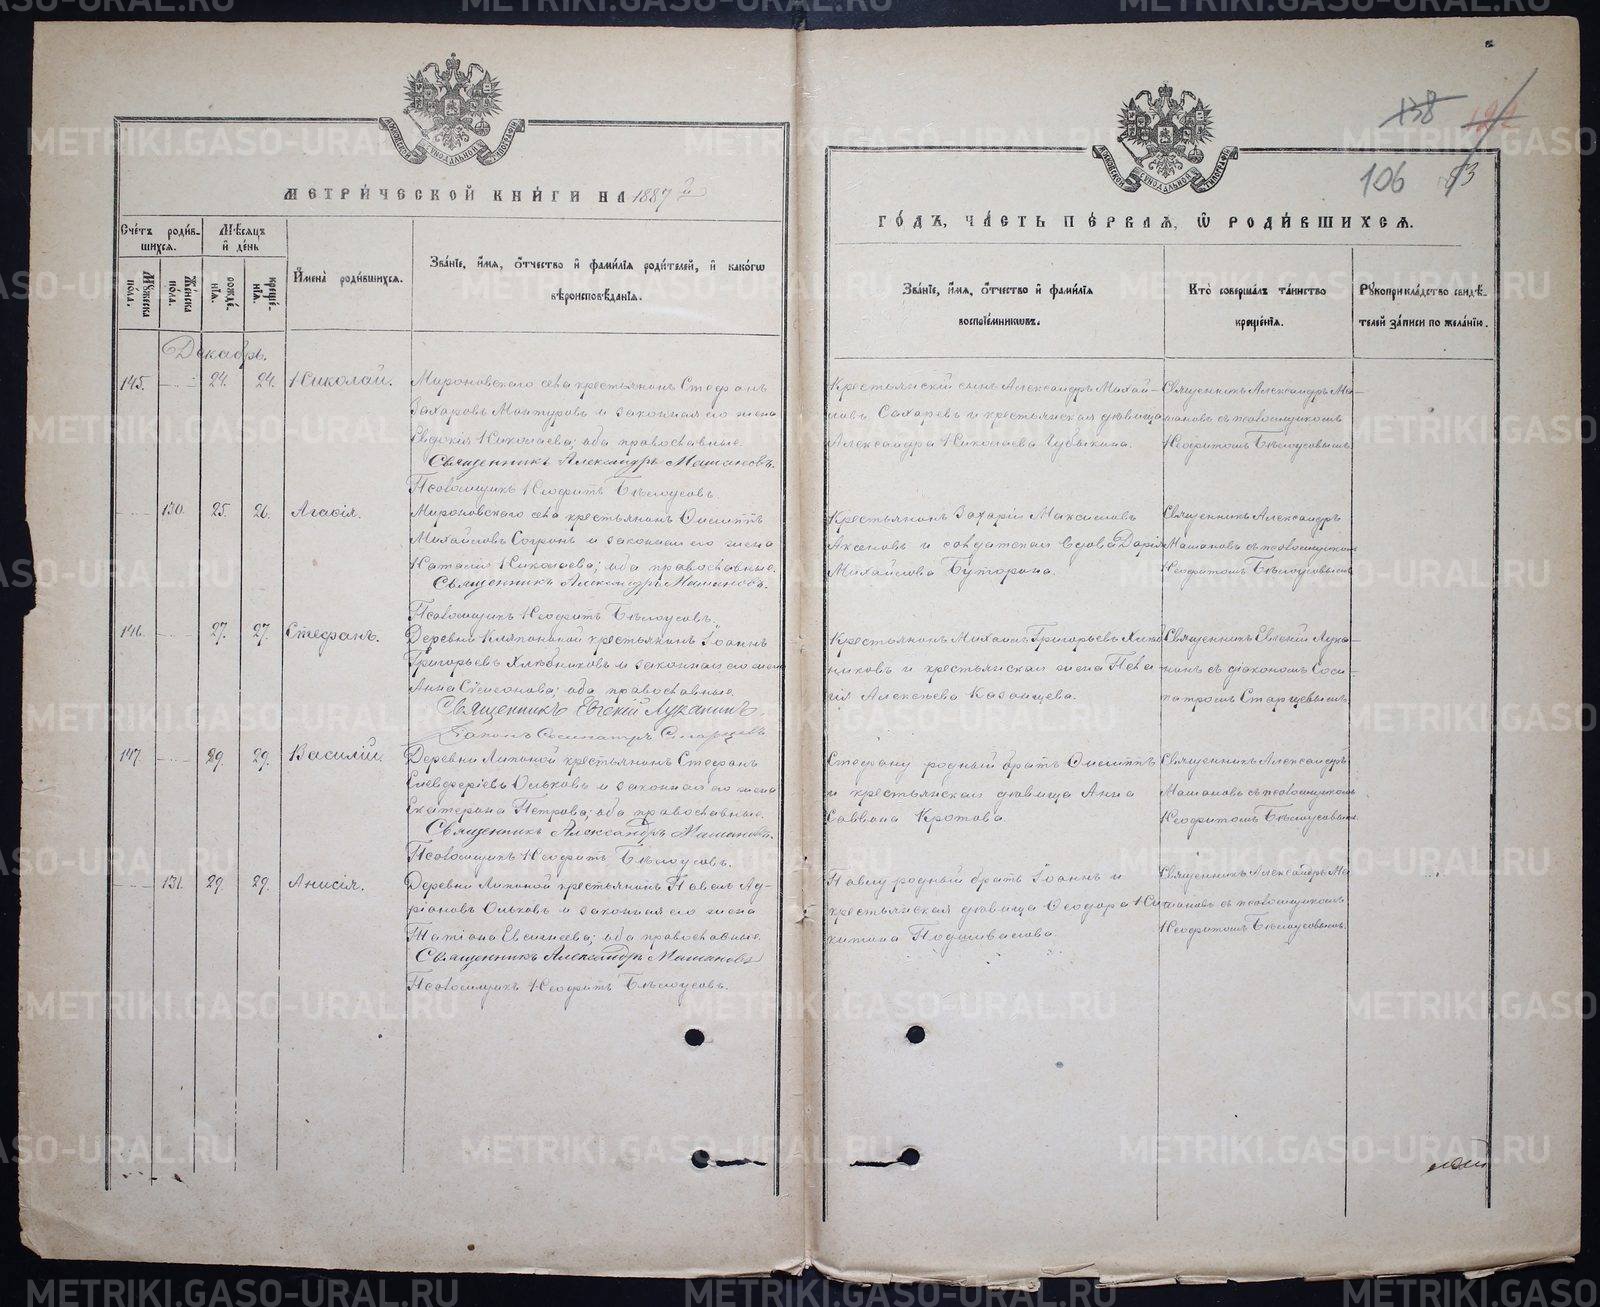 МЕТРИЧЕСКОЙ КНИГИ НА 1887 й
Счетъ родив-
шихся.
Мѣсяцъ
и день
Мужеска
пола.
Женска
пола.
рожде-
нія.
креще-
нія.
Имена родившихся.
Званіе, имя, отчество и фамилія родителей, и какого
вѣроисповѣданія.
Декабрь.
145. 24. 24. Николай.
Мироновскаго села крестьянинъ Стефанъ
Захаровъ Мантуровъ и законная его жена
Евдокія Николаева; оба православные.
Священникъ Александръ Машановъ.
Псаломщикъ Неофитъ Бѣлоусовъ.
130. 25. 26. Агафія.
Мироновскаго села крестьянинъ
Михайловъ и законная его жена
Наталія Николаева; оба православные.
Священникъ Александръ Машановъ.
Псаломщикъ Неофитъ Бѣлоусовъ.
146. 27. 27. Стефанъ.
Деревни крестьянинъ Іоаннъ
Григорьевъ Хлѣбниковъ и законная его жена
Анна Сѵмеонова; оба православные.
Священникъ Евгеній Луканинъ.
Діаконъ Сосипатръ Старцевъ
147. 29. 29. Василій.
Деревни Липиной крестьянинъ Стефанъ
Елевферіевъ Ольковъ и законная его жена
Екатерина Петрова; оба православные.
Священникъ Александръ Машановъ.
Псаломщикъ Неофитъ Бѣлоусовъ.
131. 29. 29. Анисія.
Деревни Липиной крестьянинъ Павелъ Ад-
ріановъ Ольковъ и законная его жена
Татіана Евсигнеева; оба православные.
Священникъ Александръ Машановъ
Псаломщикъ Неофитъ Бѣлоусовъ.
138
106 83
ГОДЪ, ЧАСТЬ ПЕРВАЯ, Ѿ РОДИВШИХСЯ.
Званіе, имя, отчество и фамилія
воспріемниковъ.
Кто совершалъ таинство
крещенія.
Рукоприкладство свидѣ-
телей записи по желанію.
Крестьянскій сынъ Александръ Михай-
ловъ Сахаревъ и крестьянская дѣвица
Александра Николаева Чубыкина.
Священникъ Александръ Ма-
шановъ съ псаломщикомъ
Неофитомъ Бѣлоусовымъ
Крестьянинъ Захарій Максимовъ
Аксеновъ и солдатская вдова Дарія
Михайлова Буторина.
Священникъ Александръ
Машановъ съ псаломщикомъ
Неофитомъ Бѣлоусовымъ
Крестьянинъ Михаилъ Григорьевъ Хлѣб
никовъ и крестьянская жена Пела-
гія Алексѣева Казанцева.
Священникъ Евгеній Лука-
нинъ съ діакономъ Соси-
патромъ Старцевымъ
Стефану родный братъ
и крестьянская дѣвица Анна
Саввина Кротова.
Священникъ Александръ
Машановъ съ псаломщикомъ
Неофитомъ Бѣлоусовымъ
Павлу родный братъ Іоаннъ и
крестьянская дѣвица Ѳеодора Ни
китина Подшивалова.
Священникъ Александръ Ма
шановъ съ псаломщикомъ
Неофитомъ Бѣлоусовымъ.
METRIKI.GASO-URAL.RU